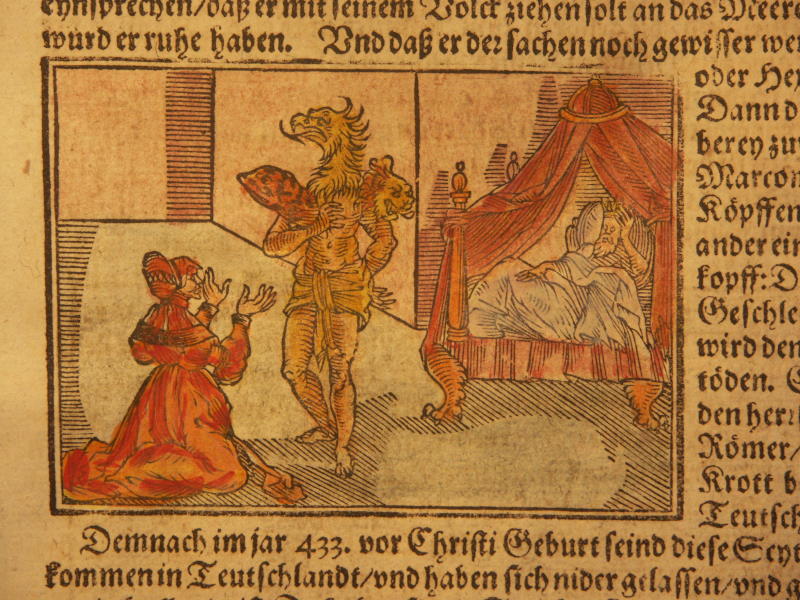 eynsprechen/daß er mit seinem Volck ziehen solt an das Meere
wurd er ruhe haben. Vnd daß er der sachen noch gewisser wer
oder Hey
Dann d
berey zu
Marcom
Köpffen
ander ein
kopff: D
Geschle
wird den
töden.
den herr
Römer/
Krott b
Teutsch
Demnach im jar 433. vor Christi Geburt seind diese Scyt
kommen in Teutschlandt/vnd haben sich nider gelassen/vnd g